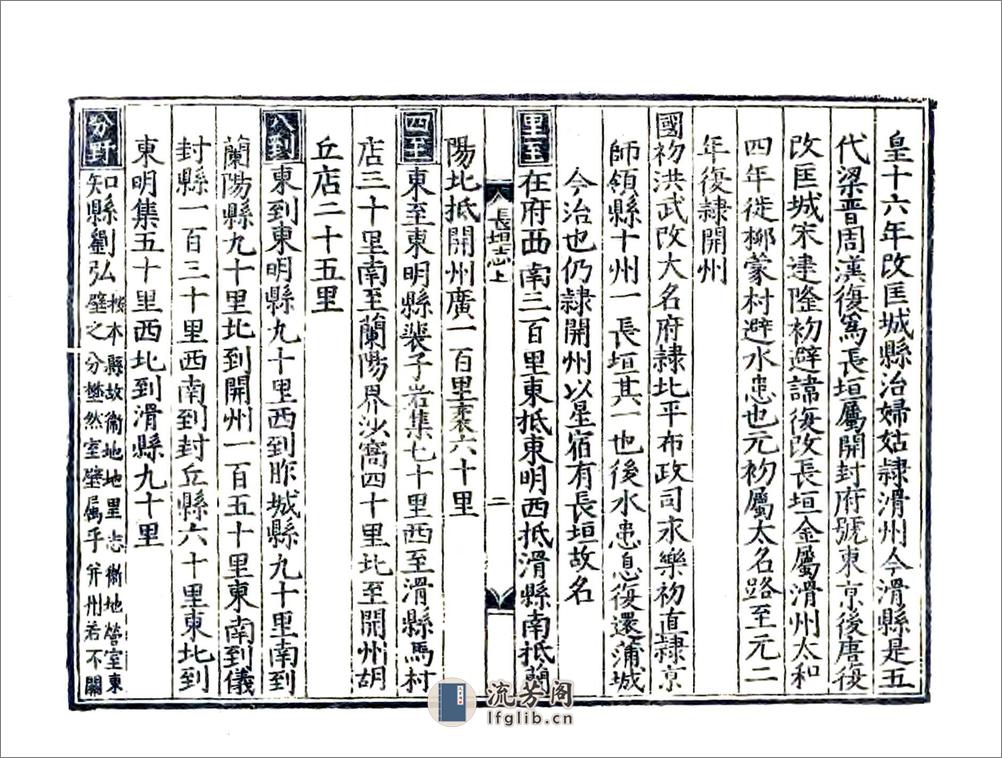 皇十六年改匡城縣治婦姑隷滑州今滑縣是五
代梁晋周漢復爲長垣屬開封府號東京後唐復
改匡城宋建隆初避諱復改長垣金屬滑州太和
四年徙柳蒙村避水患也元初屬大名路至元二
年復隷開州
國初洪武改大名府隷北平布政司永樂初直隷京
師領縣十州一長垣其一也後水患息復還蒲城
今治也仍隷開州以星宿有長垣故名
里至在府西南三百里東抵東明西抵滑縣南抵蘭
陽北抵開州廣一百里袤六十里
長垣志上 二
四至東至東明縣裴子岩集七十里西至滑縣馬村
店三十里南至蘭陽界沙窩四十里北至開州胡
丘店二十五里
八到東到東明縣九十里西到胙城縣九十里南到
蘭陽縣九十里北到開州一百五十里東南到儀
封縣一百三十里西南到封丘縣六十里東北到
東明集五十里西北到滑縣九十里
分野知縣劉弘按本縣故衛地地里志衛地營室東
壁之分壄然室壁属乎并州若不關
流芳阁
lfglib.cn